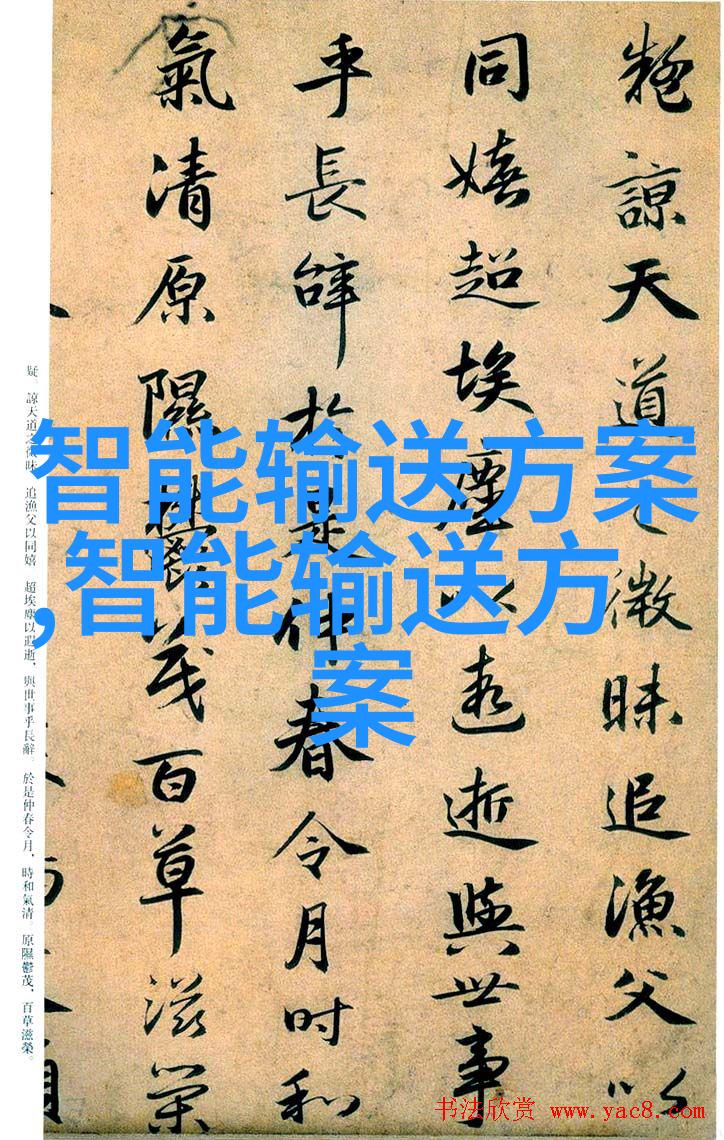 疑諒天道之微昧追漁父以
同嬉超埃塵以遐逝與世事
乎長辭於是仲春令月時和
氣清原隰鬱茂百草滋榮
疑。諒天道之微昧，追漁父以同嬉 超埃塵以遐逝，與世事乎長辭。於是仲春令月，時和氣清。原隰鬱茂，百草滋榮。
智能输送方案
,智能输送方
案
书法欣赏 www.yac8.com